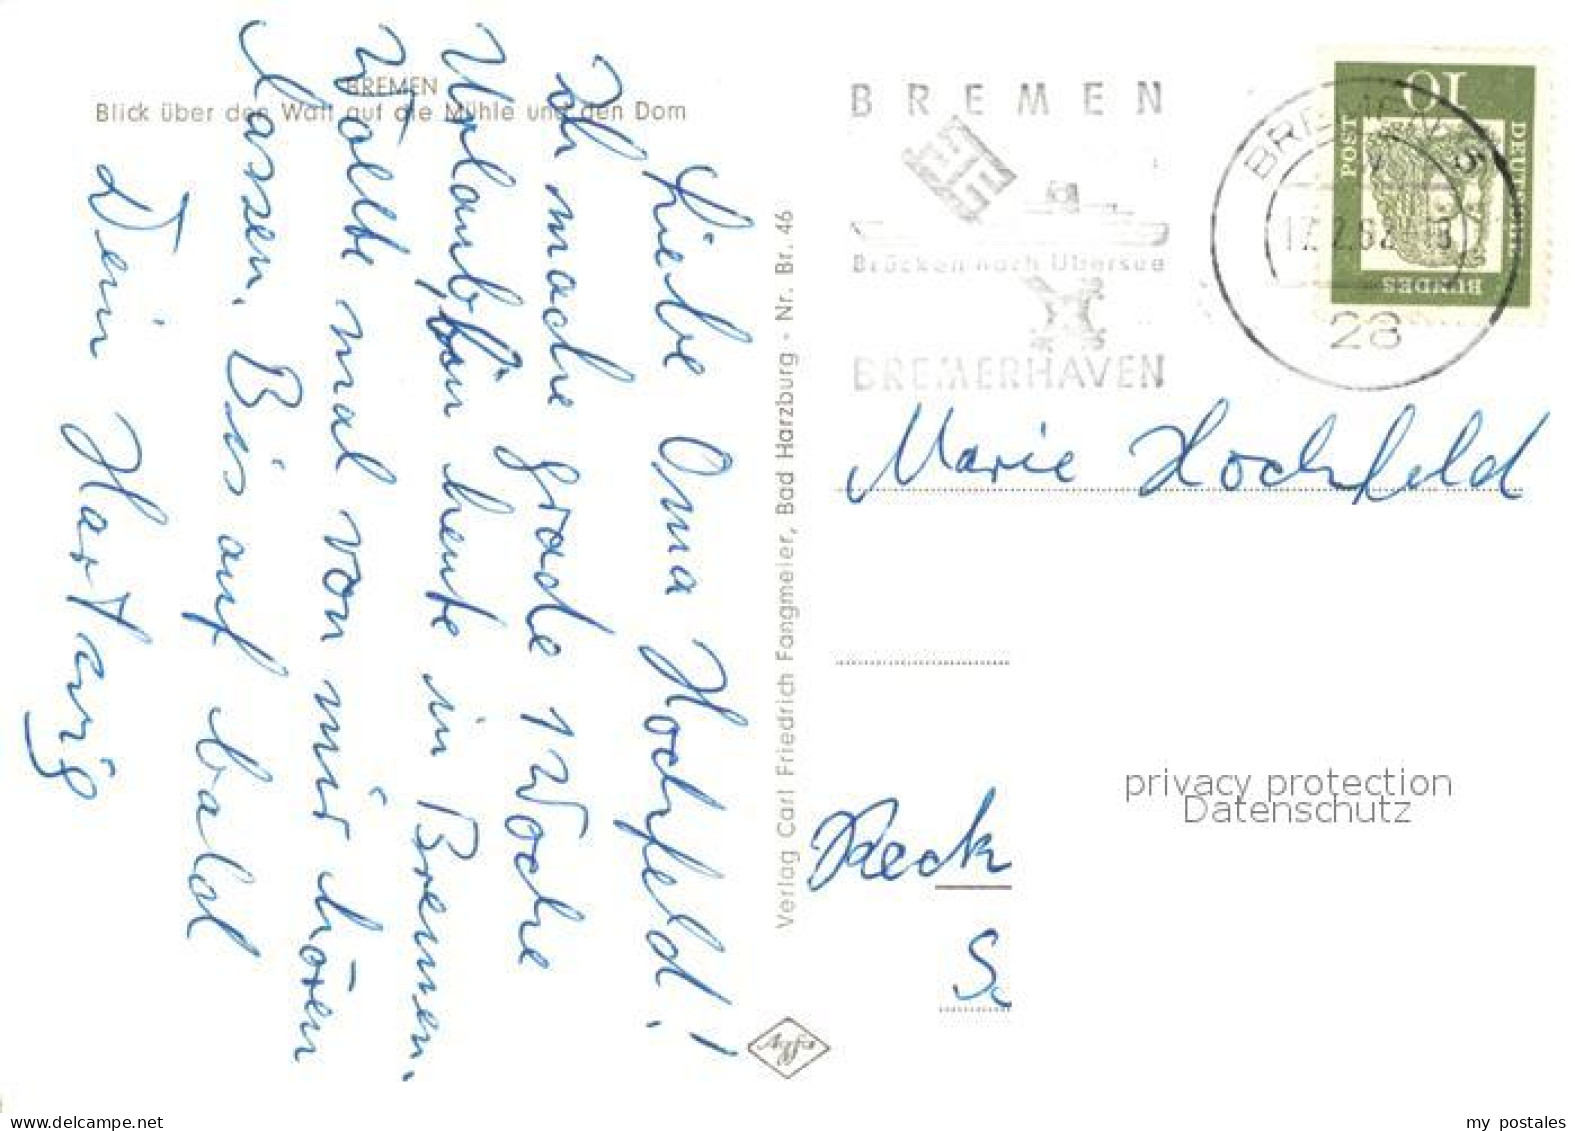 BREMEN
Blick über den Wall auf die Mühle und den Dom
Liebe Oma Hochfeld!
Ich mache grade 1 Woche
Urlaub, bin heute in Bremen.
Wollte mal von mir hören
lassen. Bis auf bald
Dein Hartwig
Verlag Carl Friedrich Fangmeier, Bad Harzburg · Nr. Br. 46
Agfa
BREMEN
Brücken nach Übersee
BREMERHAVEN
BREMEN 5
28
10
POST
DEUTSCHE
BUNDES
Marie Hochfeld
privacy protection
Datenschutz
S.
www.delcampe.net
my_postales